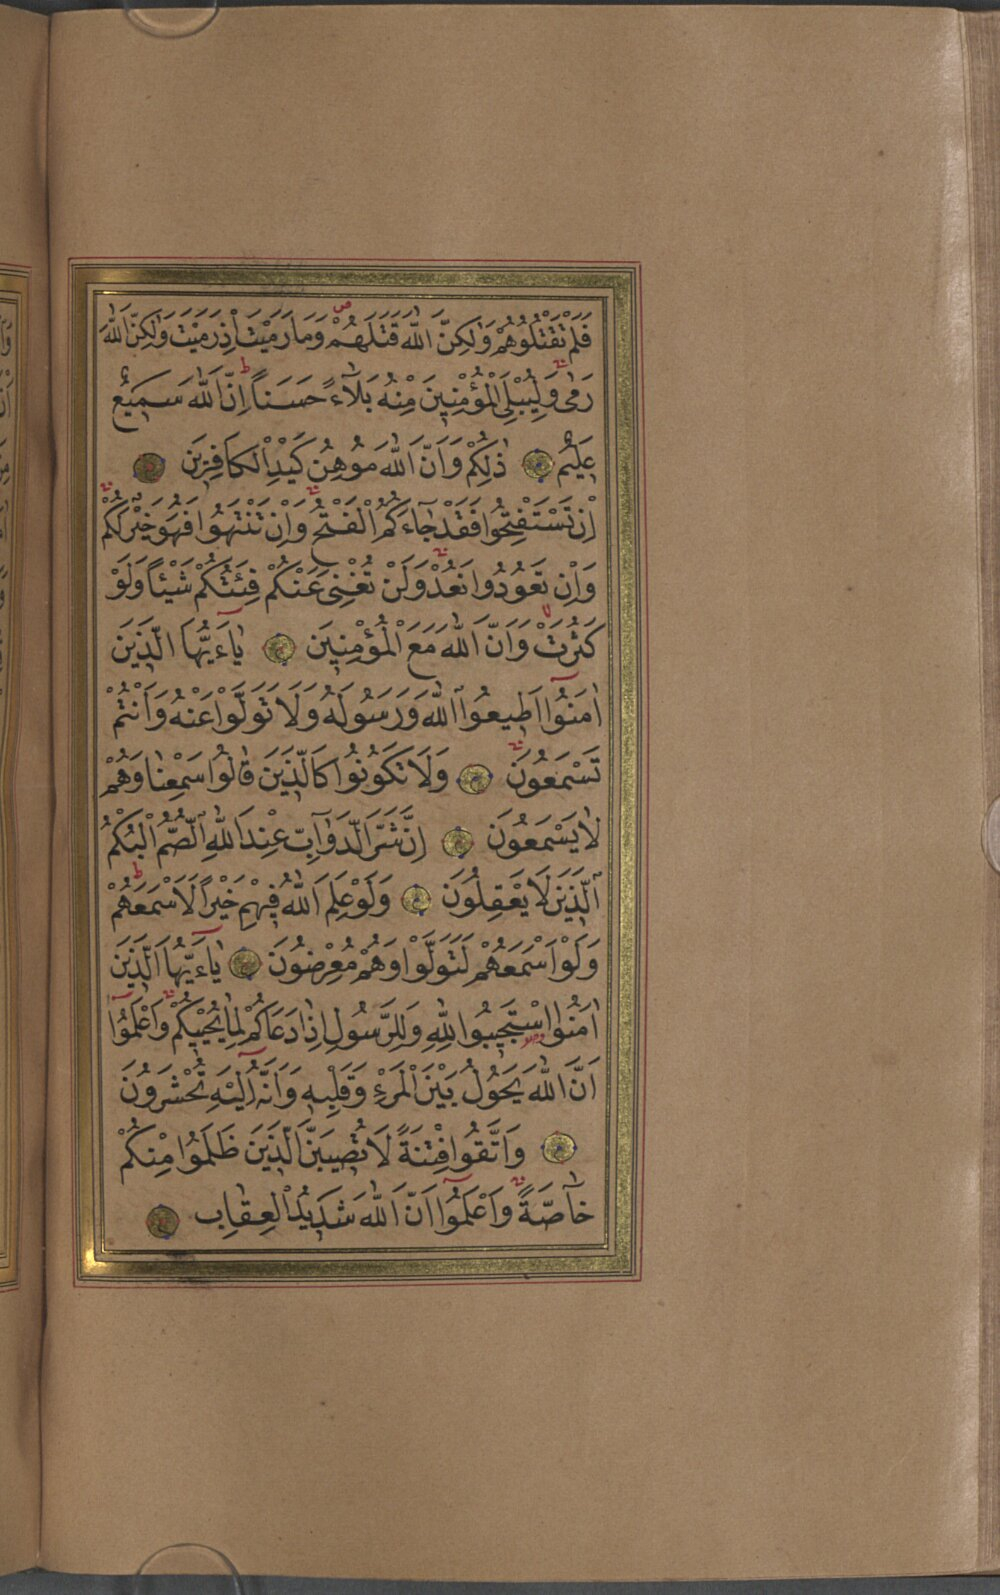 فَلَمْ تَقْتُلُوهُمْ وَلٰكِنَّ اللّٰهَ قَتَلَهُمْ وَمَا رَمَيْتَ اِذْ رَمَيْتَ وَلٰكِنَّ اللّٰهَ
رَمٰى وَلِيُبْلِيَ الْمُؤْمِنِينَ مِنْهُ بَلَٓاءً حَسَنًا اِنَّ اللّٰهَ سَمِيعٌ
عَلِيمٌ ذٰلِكُمْ وَاَنَّ اللّٰهَ مُوهِنُ كَيْدِ الْكَافِرِينَ
اِنْ تَسْتَفْتِحُوا فَقَدْ جَٓاءَكُمُ الْفَتْحُ وَاِنْ تَنْتَهُوا فَهُوَ خَيْرٌ لَكُمْ
وَاِنْ تَعُودُوا نَعُدْ وَلَنْ تُغْنِيَ عَنْكُمْ فِئَتُكُمْ شَيْئًا وَلَوْ
كَثُرَتْ وَاَنَّ اللّٰهَ مَعَ الْمُؤْمِنِينَ يَٓاءَيُّهَا الَّذِينَ
اٰمَنُوٓا اَطِيعُوا اللّٰهَ وَرَسُولَهُ وَلَا تَوَلَّوْا عَنْهُ وَاَنْتُمْ
تَسْمَعُونَ وَلَا تَكُونُوا كَالَّذِينَ قَالُوا سَمِعْنَا وَهُمْ
لَا يَسْمَعُونَ اِنَّ شَرَّ الدَّوَٓابِّ عِنْدَ اللّٰهِ الصُّمُّ الْبُكْمُ
الَّذِينَ لَا يَعْقِلُونَ وَلَوْ عَلِمَ اللّٰهُ فِيهِمْ خَيْرًا لَاَسْمَعَهُمْ
وَلَوْ اَسْمَعَهُمْ لَتَوَلَّوْا وَهُمْ مُعْرِضُونَ يَٓاءَيُّهَا الَّذِينَ
اٰمَنُوا اسْتَجِيبُوا لِلّٰهِ وَلِلرَّسُولِ اِذَا دَعَاكُمْ لِمَا يُحْيِيكُمْ وَاعْلَمُوٓا
اَنَّ اللّٰهَ يَحُولُ بَيْنَ الْمَرْءِ وَقَلْبِهِ وَاَنَّهُٓ اِلَيْهِ تُحْشَرُونَ
وَاتَّقُوا فِتْنَةً لَا تُصِيبَنَّ الَّذِينَ ظَلَمُوا مِنْكُمْ
خَٓاصَّةً وَاعْلَمُوٓا اَنَّ اللّٰهَ شَدِيدُ الْعِقَابِ